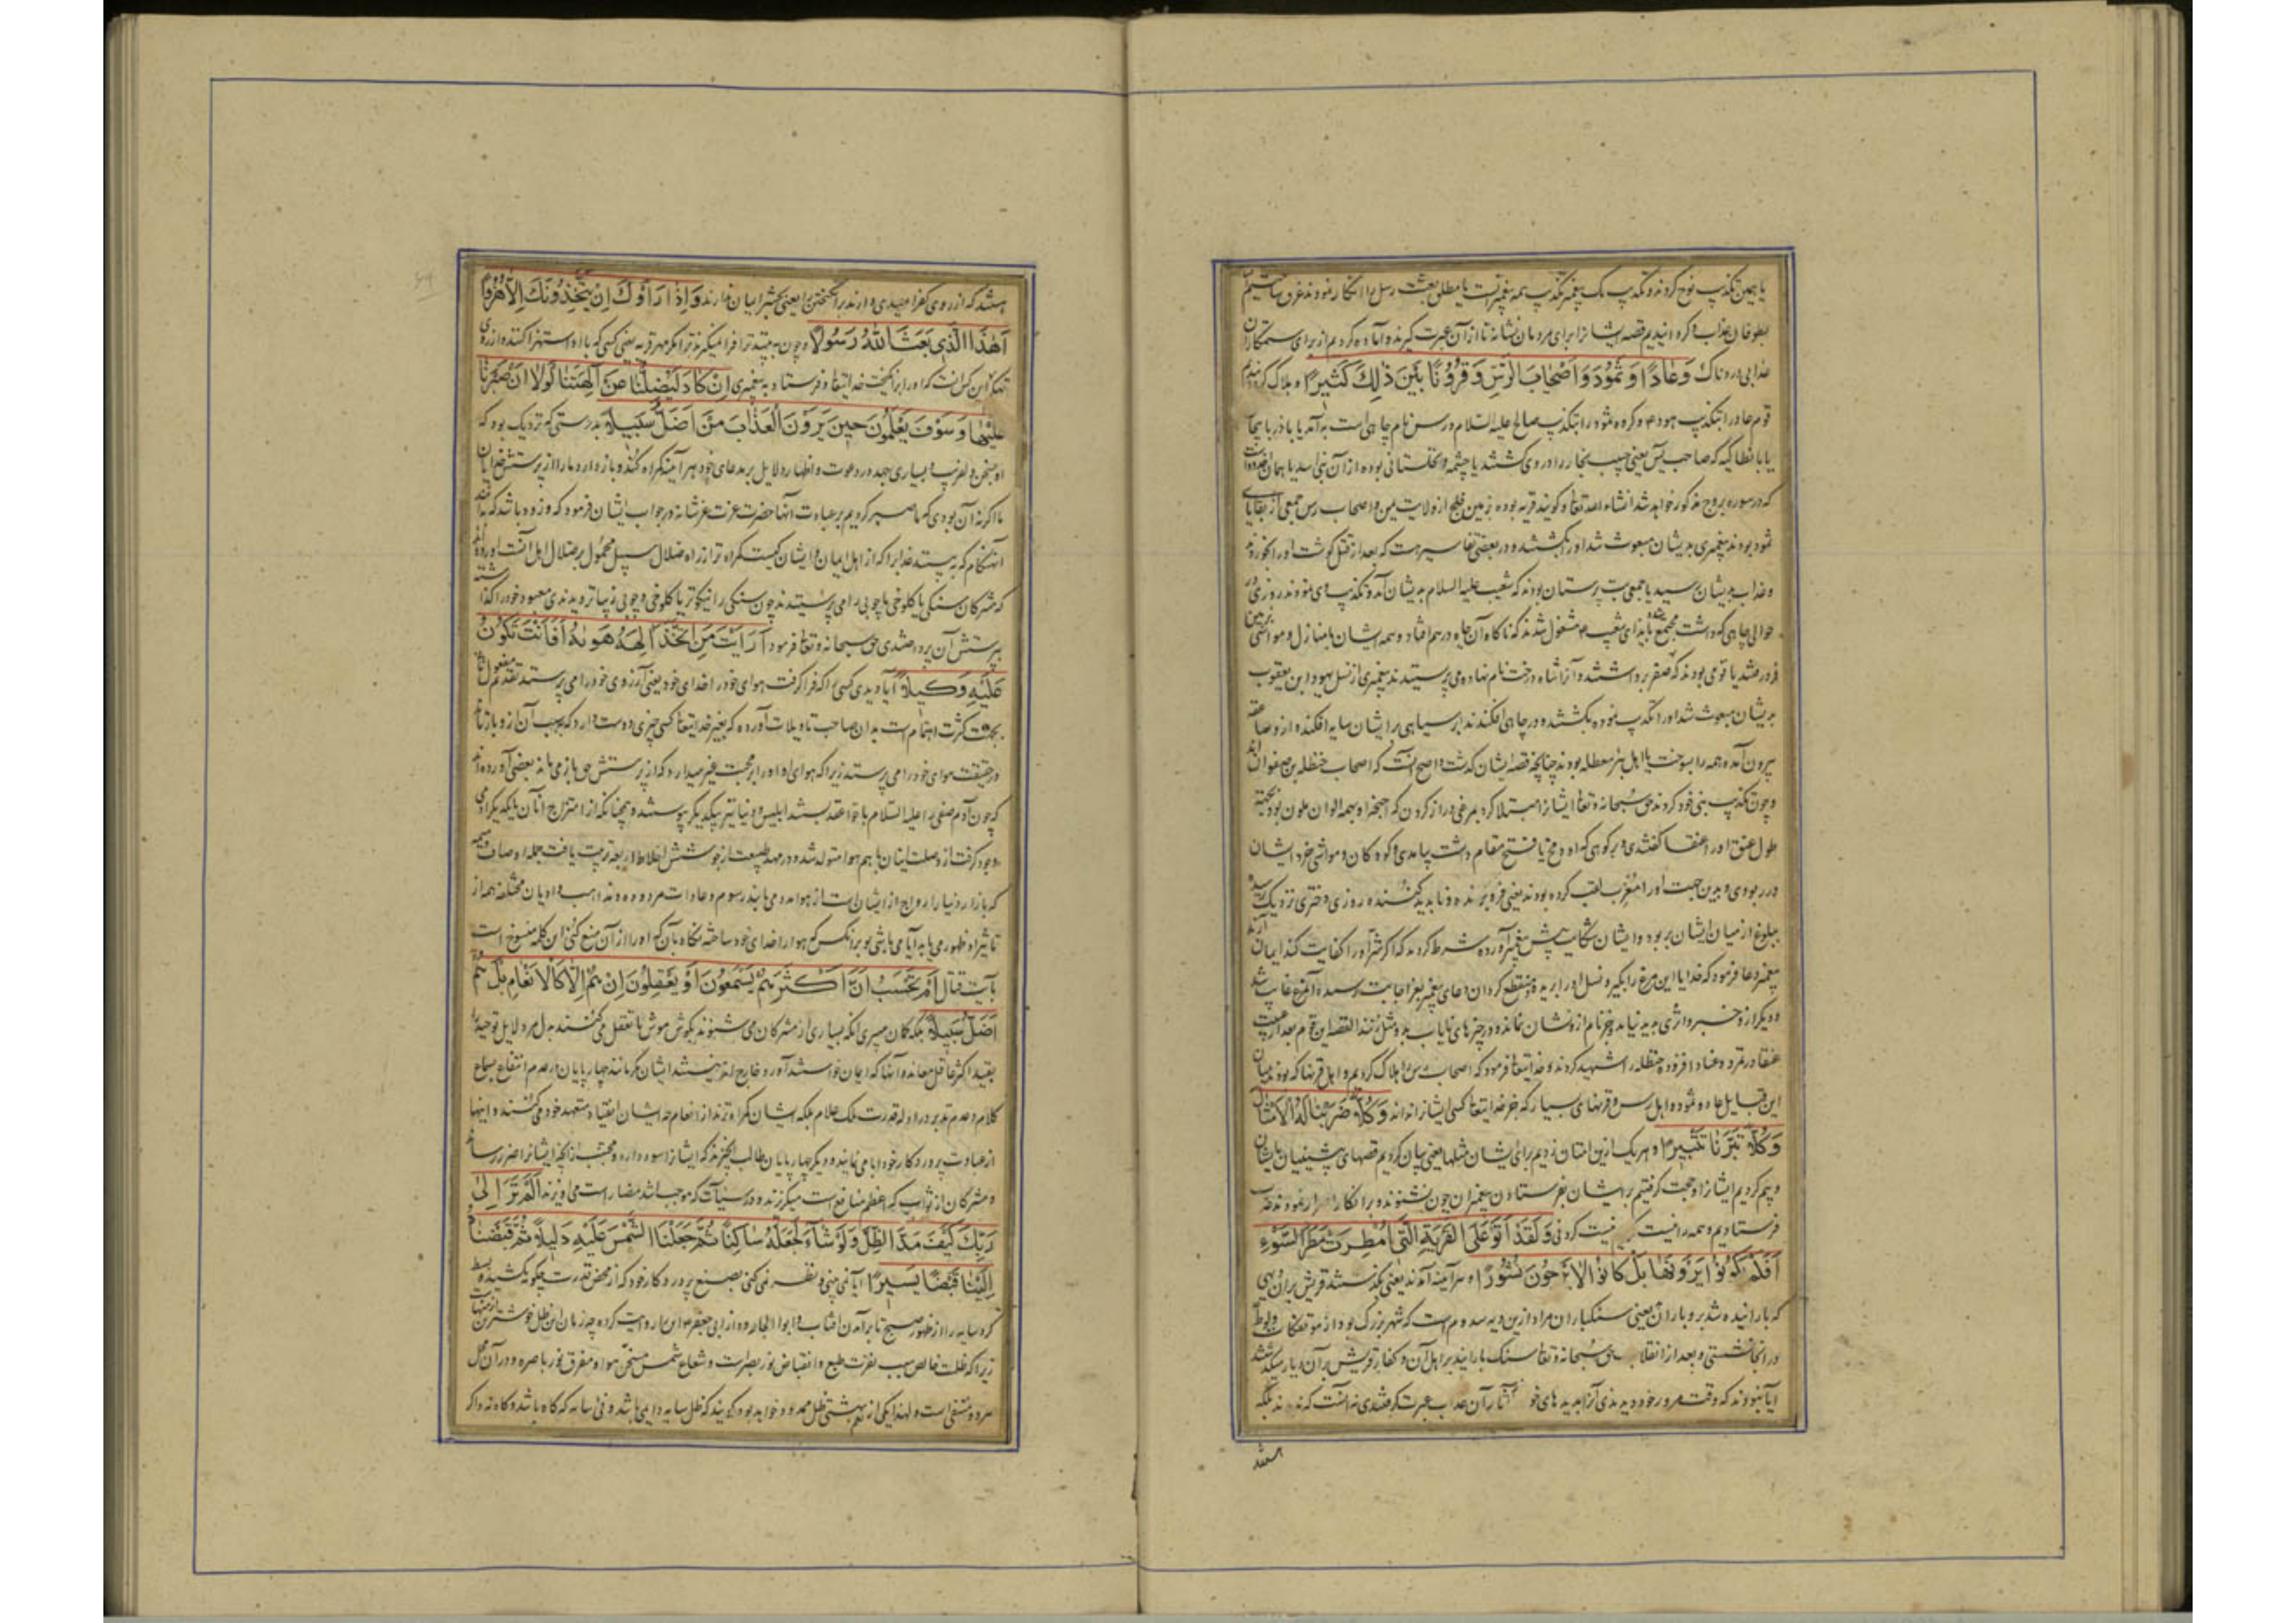 یا بهمین تکذیب نوح کردند و تکذیب یک پیغمبر تکذیب همه پیغمبرانست یا مطلق بعثت رسل را انکار نمودند غرق ساختیم
بطوفان عذاب و گردانیدیم قصه ایشانرا برای مردمان نشانه تا از آن عبرت گیرند و آماده کردیم از برای ستمکاران
عذابی دردناک وَعَادًا وَثَمُودَ وَاَصْحَابَ الرَّسِّ وَقُرُونًا بَيْنَ ذٰلِكَ كَثِيرًا و هلاک کردیم
قوم عاد را بتکذیب هود و گروه ثمود را بتکذیب صالح علیه السلام و رس نام چاهی است به
یا بانطاکیه که صاحب یس یعنی حبیب نجار را در وی کشتند یا چشمه و نخلستانی بوده از آن بنی اسد یا همان اخدود است
که در سوره بروج مذکور خواهد شد انشاء الله تعالی و گویند قریه بوده بزمین فلج از ولایت یمن و اصحاب رس جمعی از بقایای
ثمود بودند پیغمبری بدیشان مبعوث شد او را بکشتند و در بعضی تفاسیر هست که بعد از قتل گوشت او را بخوردند
و عذاب بدیشان رسید یا جمعی بت پرستان بودند که شعیب علیه السلام بدیشان آمد و تکذیب وی نمودند روزی در
حوالی چاهی که داشت مجتمع شده بایذای شعیب مشغول شدند که ناگاه آن چاه در هم افتاد و همه ایشان با منازل و مواشی بزمین
فرو رفتند یا قومی بودند که صنوبر داشتند و آنرا شاه درخت نام نهاده می پرستیدند پیغمبری از نسل یهودا بن یعقوب
بدیشان مبعوث شد او را تکذیب نموده بکشتند و در چاهی افکندند ابر سیاهی بر ایشان سایه افکنده از و صاعقه
بیرون آمده همه را بسوخت یا اهل بئر معطله بودند چنانچه قصه ایشان گذشت و اصح آنست که اصحاب حنظله بن صفوان اند
و چون تکذیب نبی خود کردند حق سبحانه و تعالی ایشانرا مبتلا کرد بمرغی دراز گردن که اجنحه او بهمه الوان ملون بود بجهة
طول عنق او را عنقا گفتندی و بر کوهی که او را مخ یا فتح مقام داشت بیامدی و کودکان و مواشی خرد ایشان
در ربودی و بدین جهت او را مغرب لقب کرده بودند یعنی فرو برنده و ناپدید کننده روزی دختری نزدیک رسیده
ببلوغ از میان ایشان بربود و ایشان شکایت پیش پیغمبر آورده شرط کردند که اگر شر او را کفایت کند ایمان آرند
پیغمبر دعا فرمود که خدایا این مرغ را بگیر و نسل او را بریده و منقطع گردان دعای پیغمبر بعز اجابت رسیده آنمرغ غایب شد
و دیگر از و خبر و اثری پدید نیامد و جز نام از و نشان نمانده و در چیزهای نایاب بدو مثل زنند القصه این قوم بعد از غیبت
عنقا در تمرد و عناد افزوده حنظله را شهید کردند و خدایتعالی فرمود که اصحاب رس را هلاک کردیم و اهل قرنها که بودند میان
این قبایل عاد و ثمود و اهل رس و قرنهای بسیار که جز خدایتعالی کسی ایشانرا نداند وَكُلًّا ضَرَبْنَا لَهُ الْاَمْثَالَ
وَكُلًّا تَبَّرْنَا تَتْبِيرًا و هر یک را ازین امتان زدیم برای ایشان مثلها یعنی بیان کردیم قصهای پیشینیان بایشان
و بیم کردیم ایشانرا و حجت گرفتیم بر ایشان بفرستادن پیغمبران چون نشنودند و بر انکار اصرار نمودند عذاب
فرستادیم و همه را نیست نیست کردنی وَلَقَدْ اَتَوْا عَلَى الْقَرْيَةِ الَّتِي اُمْطِرَتْ مَطَرَ السَّوْءِ
اَفَلَمْ يَكُونُوا يَرَوْنَهَا بَلْ كَانُوا لَا يَرْجُونَ نُشُورًا و هر آینه آمدند یعنی بگذشتند قریش بران دیهی
که بارانیده شد برو باران بد یعنی سنگباران مراد ازین دیه سدوم است که شهر بزرگ بود از موتفکات و لوط
در آنجا نشستی و بعد از انقلاب حق سبحانه و تعالی سنگ بارانید بر اهل آن و کفار قریش بر آن دیار میگذشتند
آیا نبودند که وقت مرور خود دیدندی آنرا بدیدهای خود آثار آن عذاب عبرت گرفتندی نه آنست که ندیدند بلکه
هستند
هستند که از روی کفر امیدی ندارند بر انگیختن را یعنی بحشر ایمان ندارند وَاِذَا رَاَوْكَ اِنْ يَتَّخِذُونَكَ اِلَّا هُزُوًا
اَهٰذَا الَّذِي بَعَثَ اللّٰهُ رَسُولًا و چون به بینند ترا فرا نمیگیرند ترا مگر مهزو به یعنی کسی که با او استهزا کنند و از روی
تهکم این کس است که او را برانگیخت خدایتعالی و فرستاد به پیغمبری اِنْ كَادَ لَيُضِلُّنَا عَنْ اٰلِهَتِنَا لَوْلَا اَنْ صَبَرْنَا
عَلَيْهَا وَسَوْفَ يَعْلَمُونَ حِينَ يَرَوْنَ الْعَذَابَ مَنْ اَضَلُّ سَبِيلًا بدرستی که نزدیک بود که
او بسخن دلفریب و بسیاری جهد در دعوت و اظهار دلایل بر مدعای خود هر آینه گمراه کند و باز دارد ما را از پرستش خدایان
ما اگر نه آن بودی که ما صبر کردیم بر عبادت آنها حضرت عزت عز شانه در جواب ایشان فرمود که زود باشد که بدانند
آنهنگام که به بینند عذابرا که از اهل ایمان و ایشان کیست گمراه تر از راه ضلال سبیل محمول بر ضلال اهل آنست آورده اند
که مشرکان سنگی یا کلوخی یا چوبی را می پرستیدند چون سنگی را نیکوتر یا کلوخی و چوبی زیباتر دیدندی معبود خود را گذاشته
بپرستش آن پرداختندی حق سبحانه و تعالی فرمود اَرَاَيْتَ مَنِ اتَّخَذَ اِلٰهَهُ هَوٰیهُ اَفَاَنْتَ تَكُونُ
عَلَيْهِ وَكِيلًا آیا دیدی کسی را که فرا گرفت هوای خود را خدای خود یعنی آرزوی خود را می پرستد تقدیم مفعول ثانی
بجهت کثرت اهتمام است بدان صاحب تاویلات آورده که بغیر خدایتعالی کسی چیزی دوست دارد که بسبب آن از و باز ماند
در حقیقت هوای خود را می پرستد زیرا که هوای او او را بر محبت غیر میدارد که از پرستش حق باز می ماند بعضی آورده اند
که چون آدم صفی را علیه السلام با حوا عقد بستند ابلیس و دنیا نیز بیکدیگر پیوستند و همچنانکه از امتزاج آنان بایکدیگر آدمی
وجود گرفت از وصلت اینان با هم هوا متولد شد و در مهد طبیعت از جوشش اخلاط اربعه تربیت یافت جمله اوصاف ذمیمه
که بازار دنیا را رواج از ایشان است از هوا مدد می یابند رسوم و عادات مردوده و مذاهب و ادیان مختلفه همه از
تاثیر او ظهور می یابد آیا می باشی تو بر آنکس که هوا را خدای خود ساخته نگاهبان که او را از آن منع کنی این کلمه منسوخ است
بآیت قتال اَمْ تَحْسَبُ اَنَّ اَكْثَرَهُمْ يَسْمَعُونَ اَوْ يَعْقِلُونَ اِنْ هُمْ اِلَّا كَالْاَنْعَامِ بَلْ هُمْ
اَضَلُّ سَبِيلًا بلکه گمان میبری آنکه بسیاری از مشرکان می شنوند بگوش هوش یا تعقل می کنند بدل دلایل توحید را
بقید اکثر عاقل معاند و آنها که ایمان خواستند آورد خارج اند نیستند ایشان مگر مانند چهارپایان در عدم انتفاع بسماع
کلام و عدم تدبر در ادله قدرت ملک علام بلکه ایشان گمراه ترند از انعام چه ایشان انقیاد متعهد خود می کنند و اینها
از عبادت پروردگار خود ابا می نمایند و دیگر چهارپایان طالب آنچیزند که ایشانرا سود دارد و مجتنب از آنچه ایشانرا ضرر رساند
و مشرکان از ثواب که اعظم منافع است میگریزند و در سیئات که موجب اشد مضار است می آویزند اَلَمْ تَرَ اِلٰى
رَبِّكَ كَيْفَ مَدَّ الظِّلَّ وَلَوْ شَاءَ لَجَعَلَهُ سَاكِنًا ثُمَّ جَعَلْنَا الشَّمْسَ عَلَيْهِ دَلِيلًا ثُمَّ قَبَضْنَاهُ
اِلَيْنَا قَبْضًا يَسِيرًا آیا نمی بینی و نظر نمی کنی بصنع پروردگار خود که از محض قدرت چگونه بکشید و بسط
کرد سایه را از ظهور صبح تا برآمدن آفتاب و ابو الجارود از ابی جعفر روایت کرده چه زمان این ظل خوشترین ازمنهاست
زیرا که ظلمت خالص سبب نفرت طبع و انقباض نور بصر است و شعاع شمس مسخن هوا و مفرق نور باصره و در آن محل
هر دو منتفی است و لهذا یکی از نعم بهشتی ظل ممدود خواهد بود گویند که ظل سایه دایمی باشد و فی سایه که گاه باشد و گاه نه